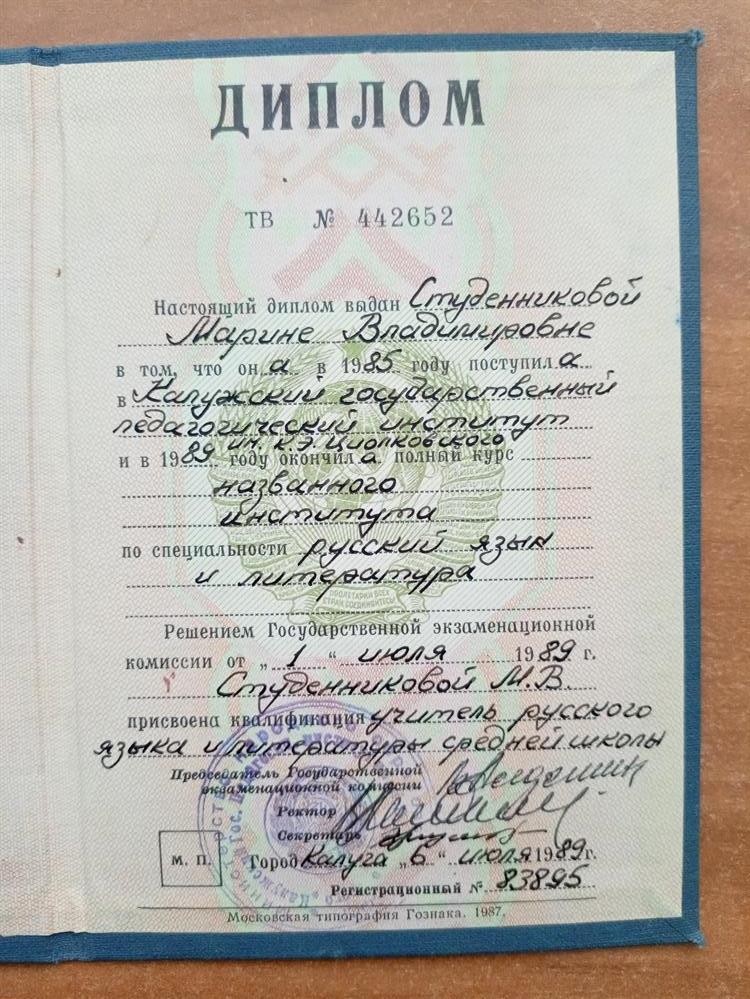 ДИПЛОМ
ТВ № 442652
Настоящий диплом выдан Студенниковой
Марине Владимировне
в том, что он а в 1985 году поступил а
в Калужский государственный
педагогический институт
им. К.Э. Циолковского
и в 1989 году окончил а полный курс
названного
института
по специальности русский язык
и литература
ПРОЛЕТАРИИ ВСЕХ
СТРАН, СОЕДИНЯЙТЕСЬ!
Решением Государственной экзаменационной
комиссии от „ 1 “ июля 1989 г.
Студенниковой М.В.
присвоена квалификация учитель русского
языка и литературы средней школы
Председатель Государственной
экзаменационной комиссии
Ректор
Секретарь
М. П.
Город Калуга „ 6 “ июля 1989 г.
Регистрационный № 83895
Московская типография Гознака. 1987.